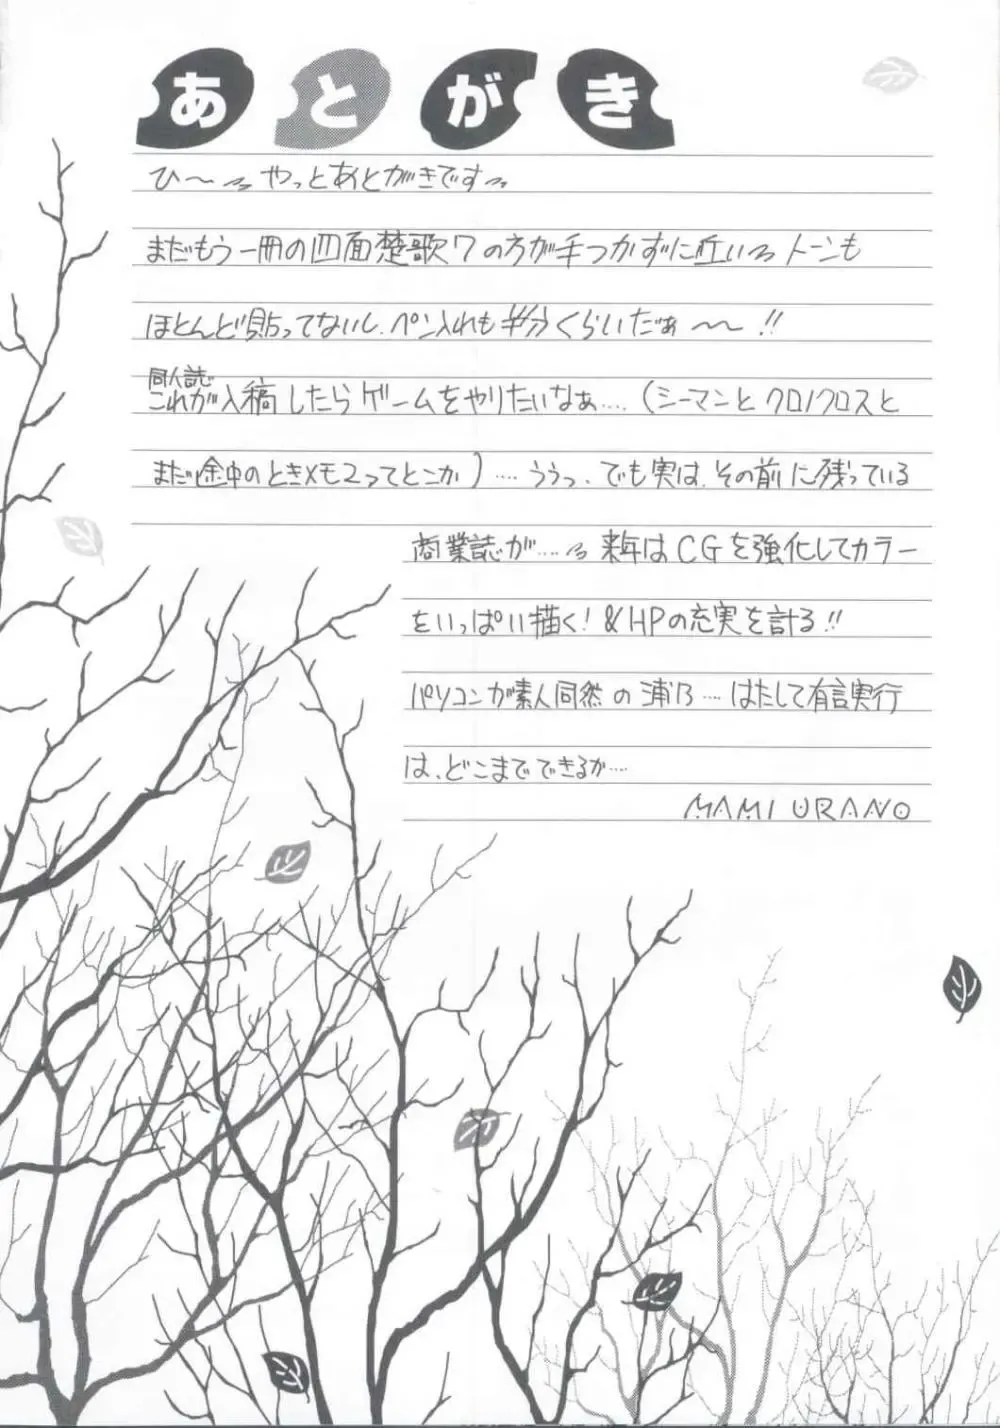 あとがき
ひ〜 やっとあとがきです
まだもう一冊の四面楚歌7の方が手つかずに近い トーンも
ほとんど貼ってないし、ペン入れも半分くらいだぁ〜〜!!
同人誌
これが入稿したらゲームをやりたいなぁ‥‥(シーマンとクロノクロスと
まだ途中のときメモ2ってとこか)‥‥ううっ、でも実は、その前に残っている
商業誌が‥‥ 来年はCGを強化してカラー
をいっぱい描く!&HPの充実を計る!!
パソコンが素人同然の浦乃‥‥はたして有言実行
は、どこまでできるか‥‥
MAMI URANO